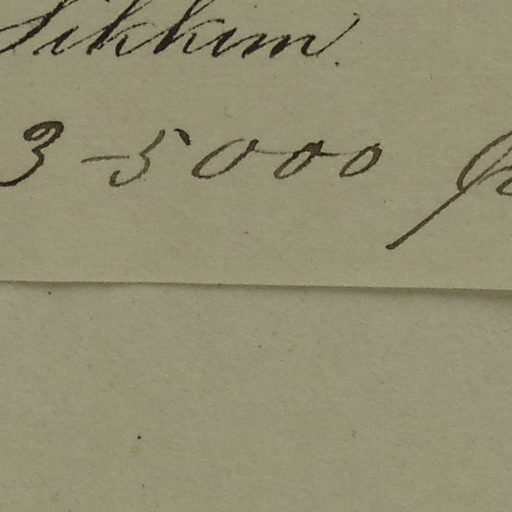 Sikkim.
3-5000